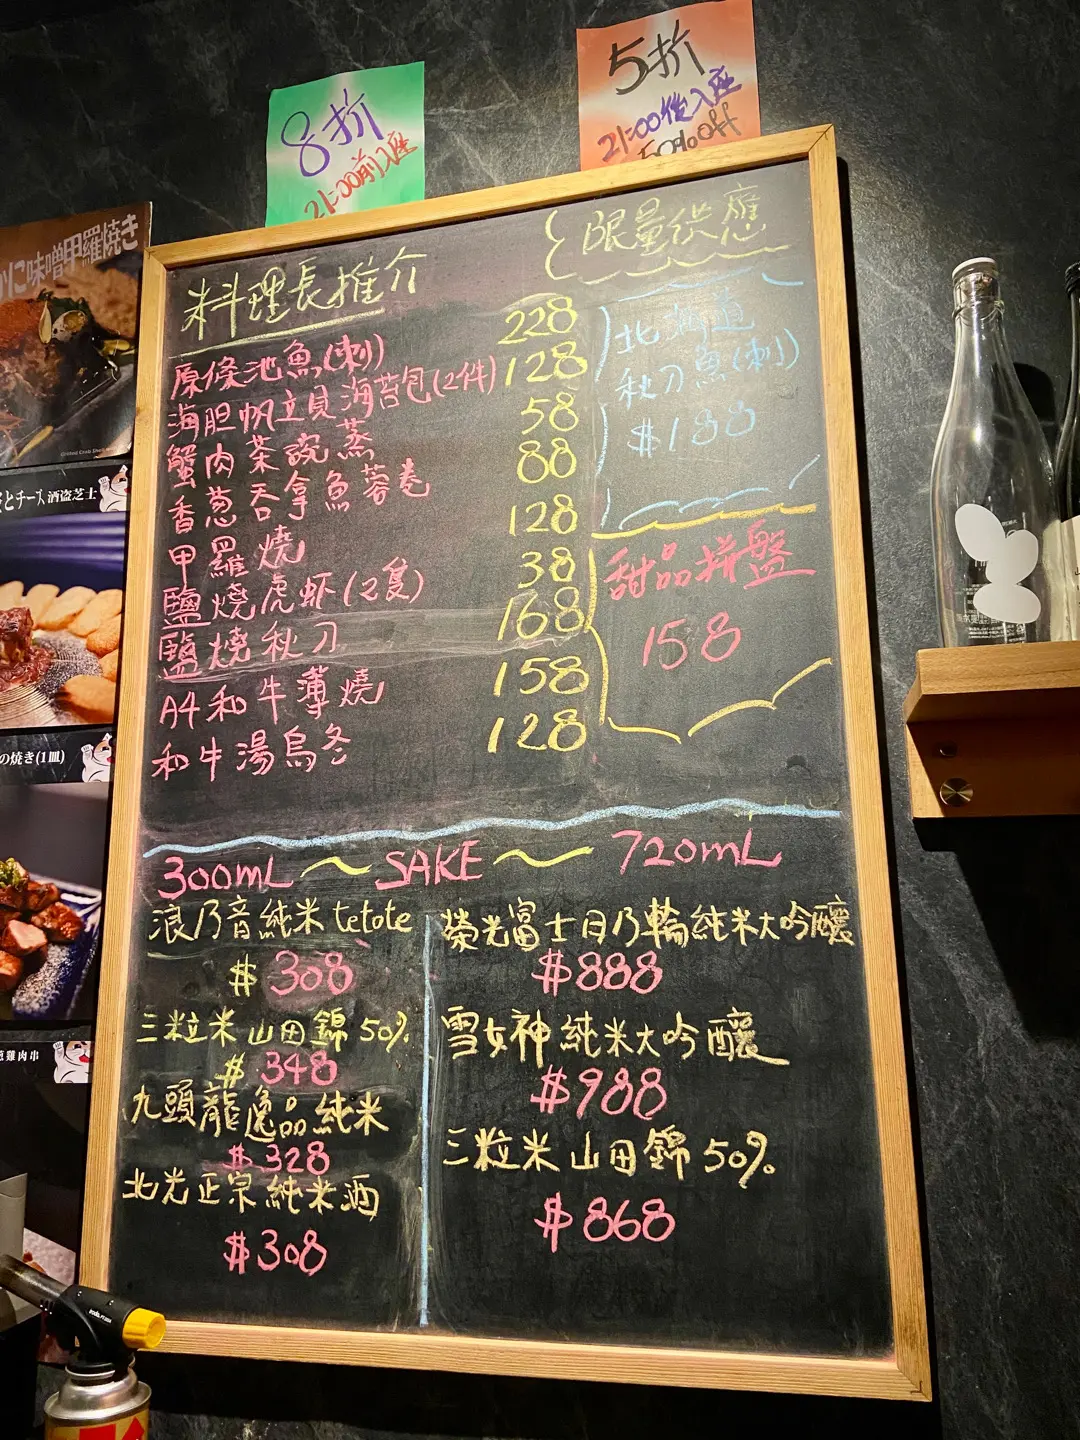 8折
21:00前入座
5折
21:00後入座
50% off
料理長推介
原條池魚(刺) 228
海胆帆立貝海苔包(2件) 128
蟹肉茶碗蒸 58
香葱吞拿魚蓉卷 88
甲羅燒 128
鹽燒虎虾(2隻) 38
鹽燒秋刀 168
A4和牛薄燒 158
和牛湯烏冬 128
限量供應
北海道
秋刀魚(刺)
$188
甜品拼盤
158
300mL ~ SAKE ~ 720mL
浪乃音純米tetote
$308
三粒米山田錦50%
$348
九頭龍逸品純米
$328
北光正宗純米酒
$308
榮光富士日乃輪純米大吟釀
$888
雪女神純米大吟釀
$988
三粒米山田錦50%
$868
に味噌甲羅焼き
とチーズ 酒盗芝士
の焼き(1皿)
葱雞肉串